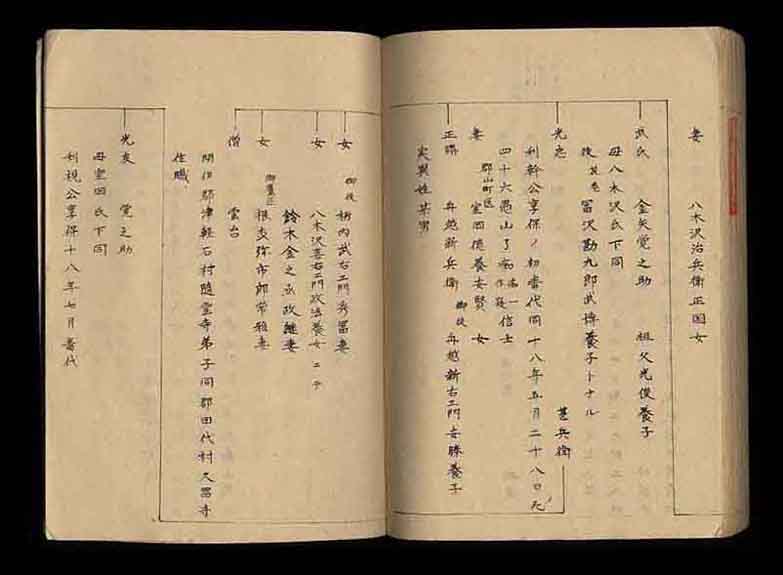 妻 八木沢治兵衛正国女
武氏 金矢覚之助 祖父光俊養子
母八木沢氏下同
後 冨沢勘九郎武博養子トナル
光忠 甚兵衛
利幹公享保ノ初番代同十八年五月二十八日死
四十六愚山了 信士
妻 郡山町医 室岡徳養安賢 女
正勝 舟越新兵衛 御徒 舟越新右エ門安勝養子
実異姓某男
女 御徒 栃内武右エ門秀冨妻
女 八木沢喜右エ門政法養女ニテ
鈴木金之丞政継妻
女 根支弥市郎常雅妻
僧 雲台
閉伊郡津軽石村随堂寺弟子同郡田代村久昌寺
住職
光友 覚之助
母室岡氏下同
利視公享保十八年七月番代